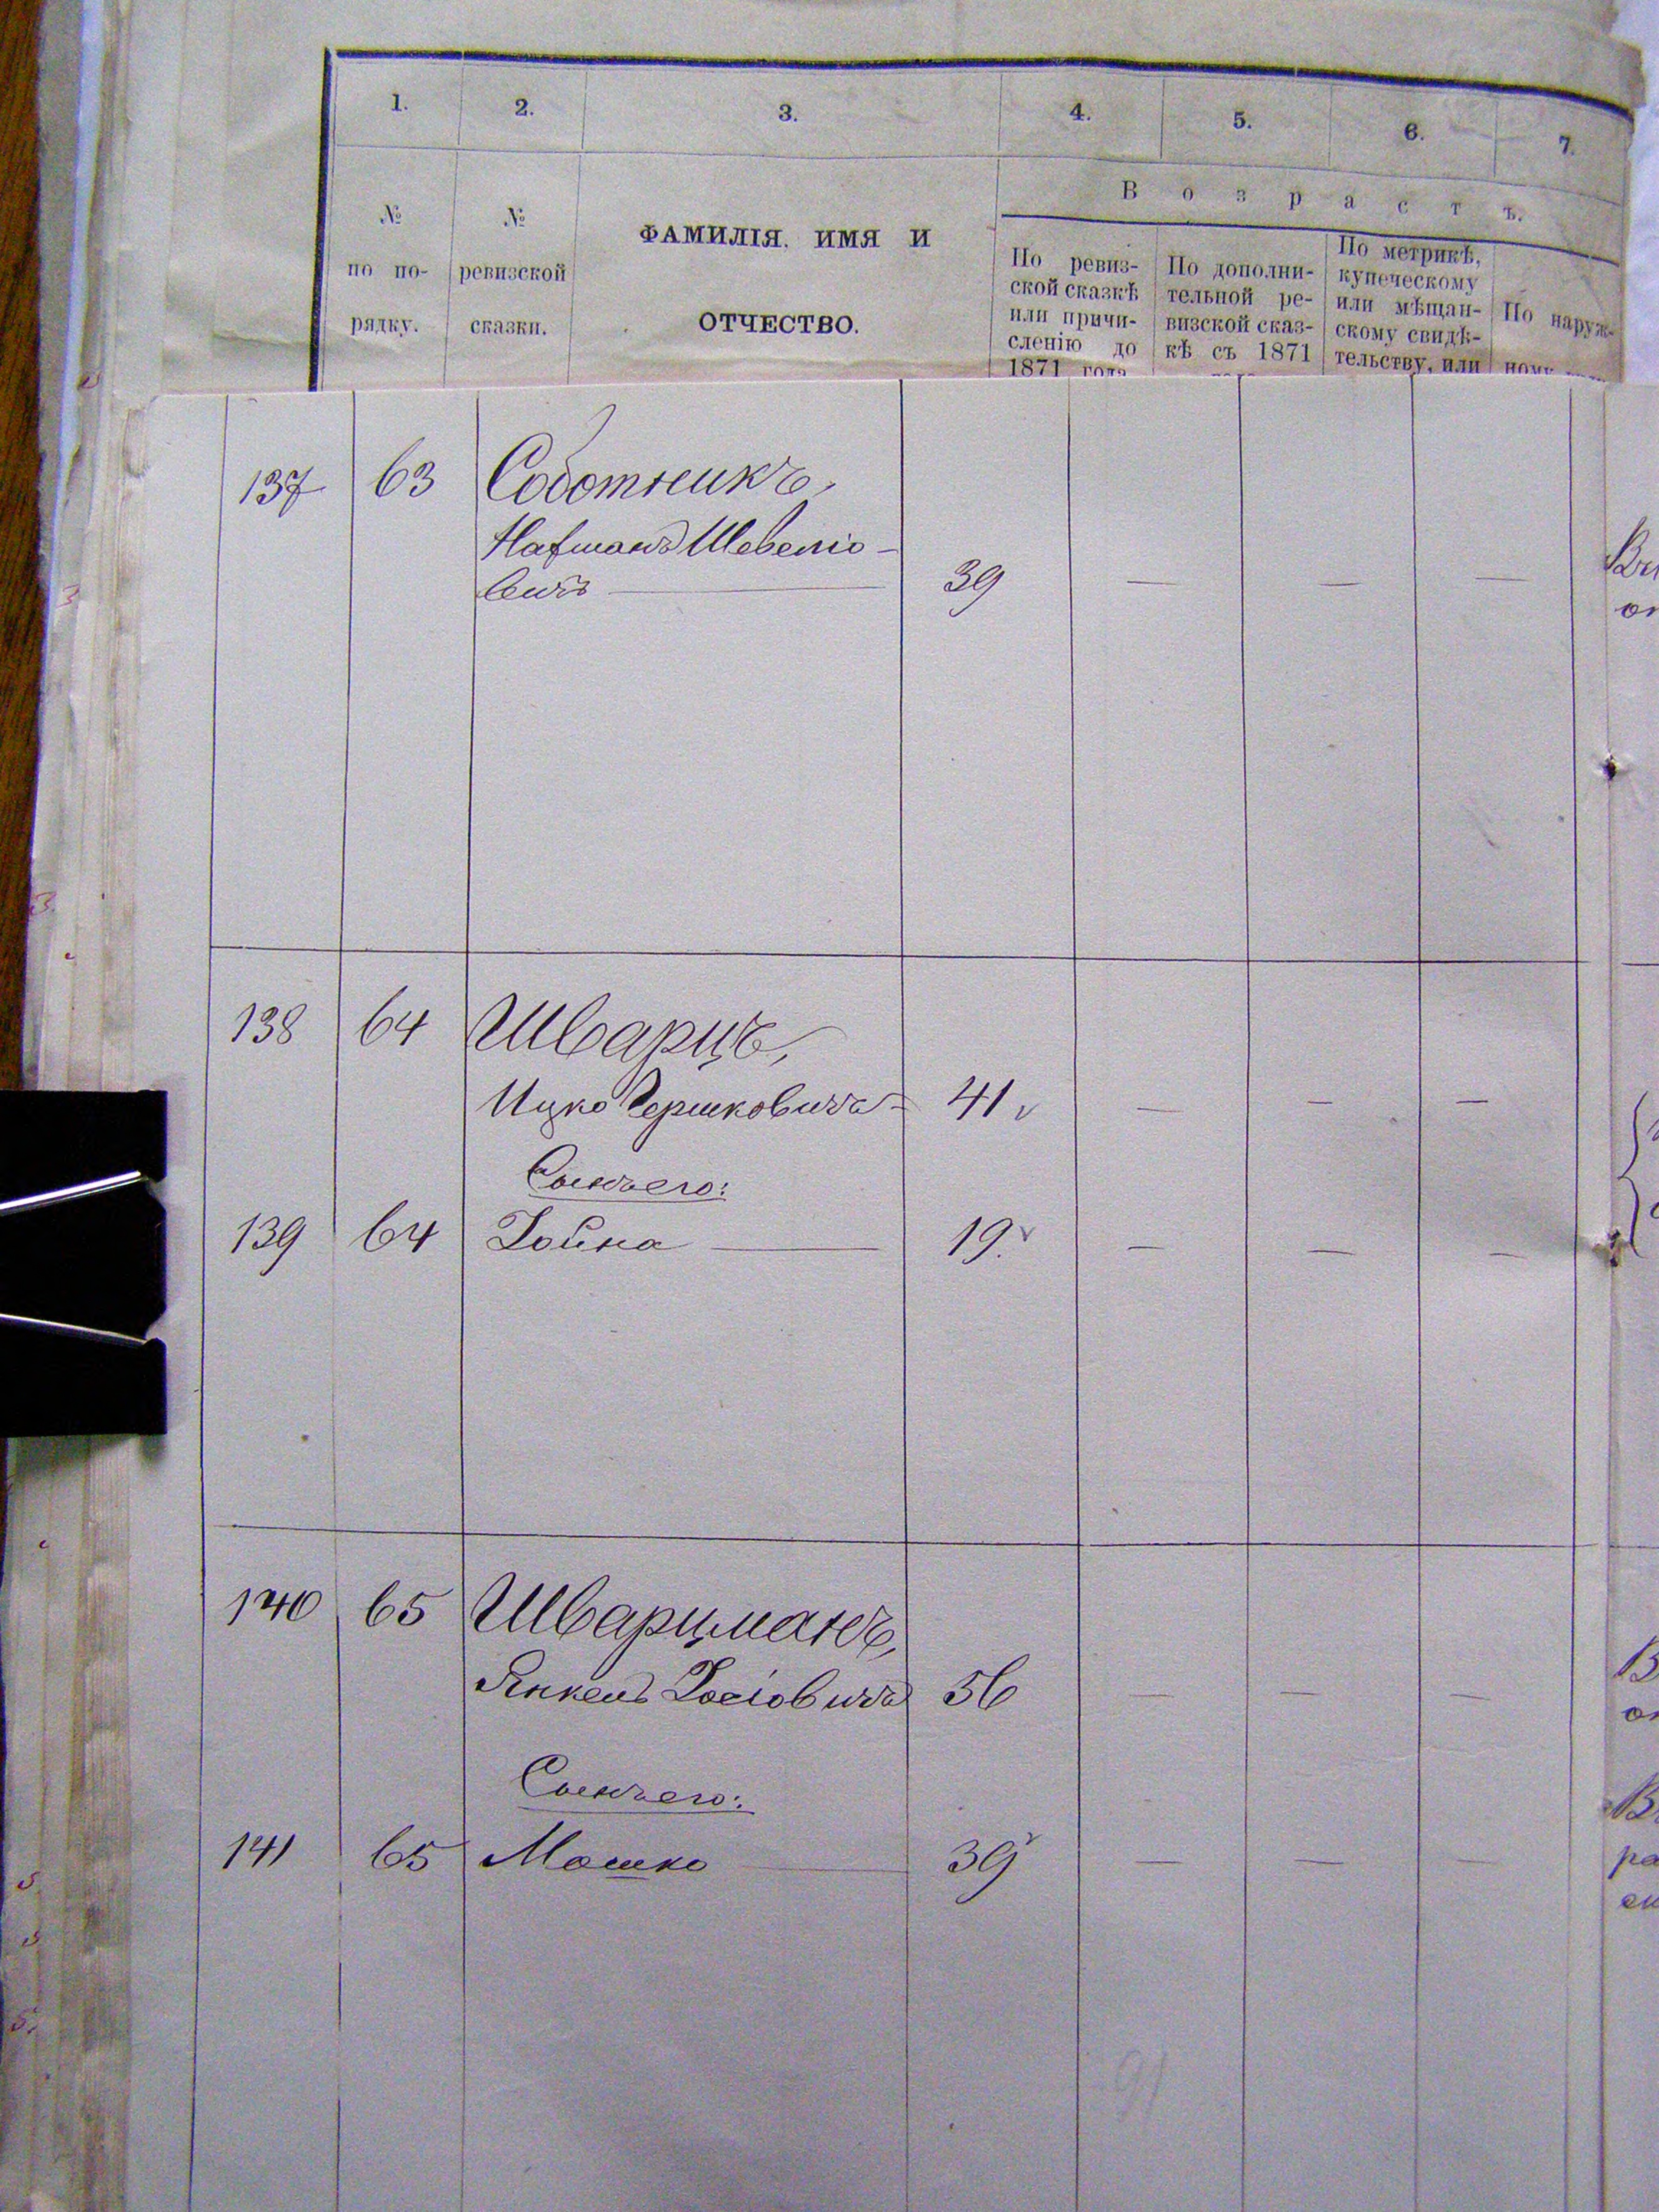 1. 2. 3. 4. 5. 6. 7.
В о з р а с т ъ.
№ по по- рядку.
№ ревизской сказки.
ФАМИЛІЯ, ИМЯ И
ОТЧЕСТВО.
По ревиз-
ской сказкѣ
или причи-
сленію до
1871 года
По дополни-
тельной ре-
визской сказ-
кѣ съ 1871
По метрикѣ,
купеческому
или мѣщан-
скому свидѣ-
тельству, или
По наруж-
ному
137 63 Соботникъ,
Нафманъ Шевеліо-
вичъ 39 — — —
138 64 Шварцъ,
Ицко Гершковичъ 41 — — —
Сынъ его:
139 64 Хойна 19. — — —
140 65 Шварцманъ,
Янкель Хаскіовичъ 56 — — —
Сынъ его:
141 65 Мошко 39 — — —
91